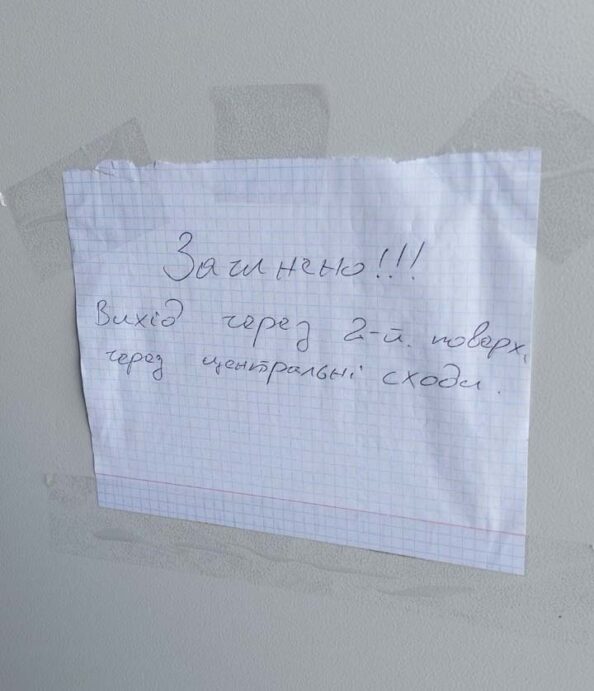 Зачинено!!!
Вихід через 2-й. поверх,
через центральні сходи.